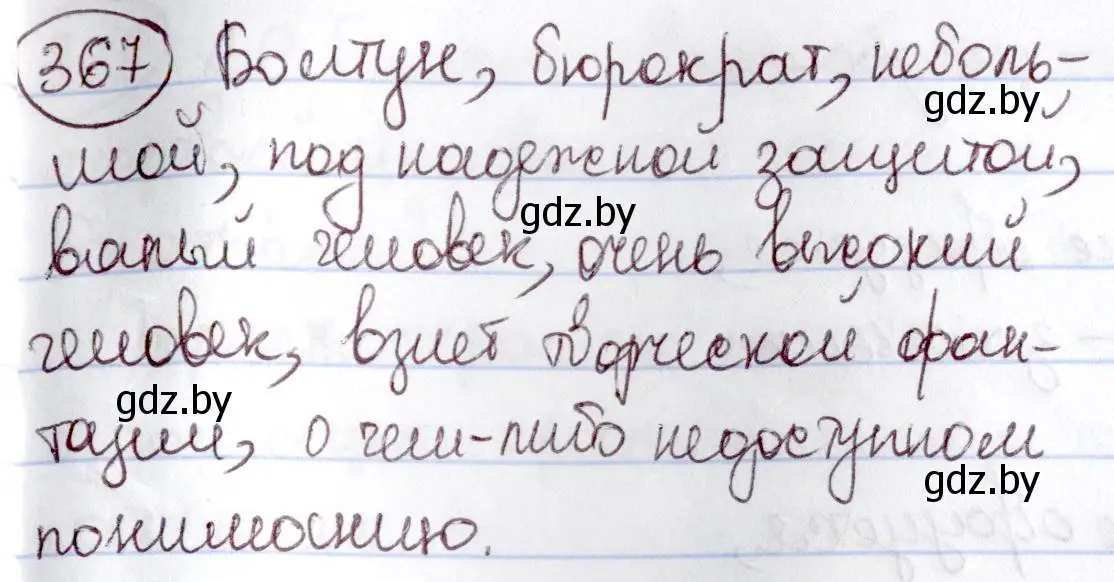 367 Болтун, бюрократ, неболь-
gdz.by
шой, под надежной защитой,
gdz.by
вялый человек, очень высокий
человек, взлет творческой фан-
gdz.by
тазии, о чем-либо недоступном
gdz.by
пониманию.